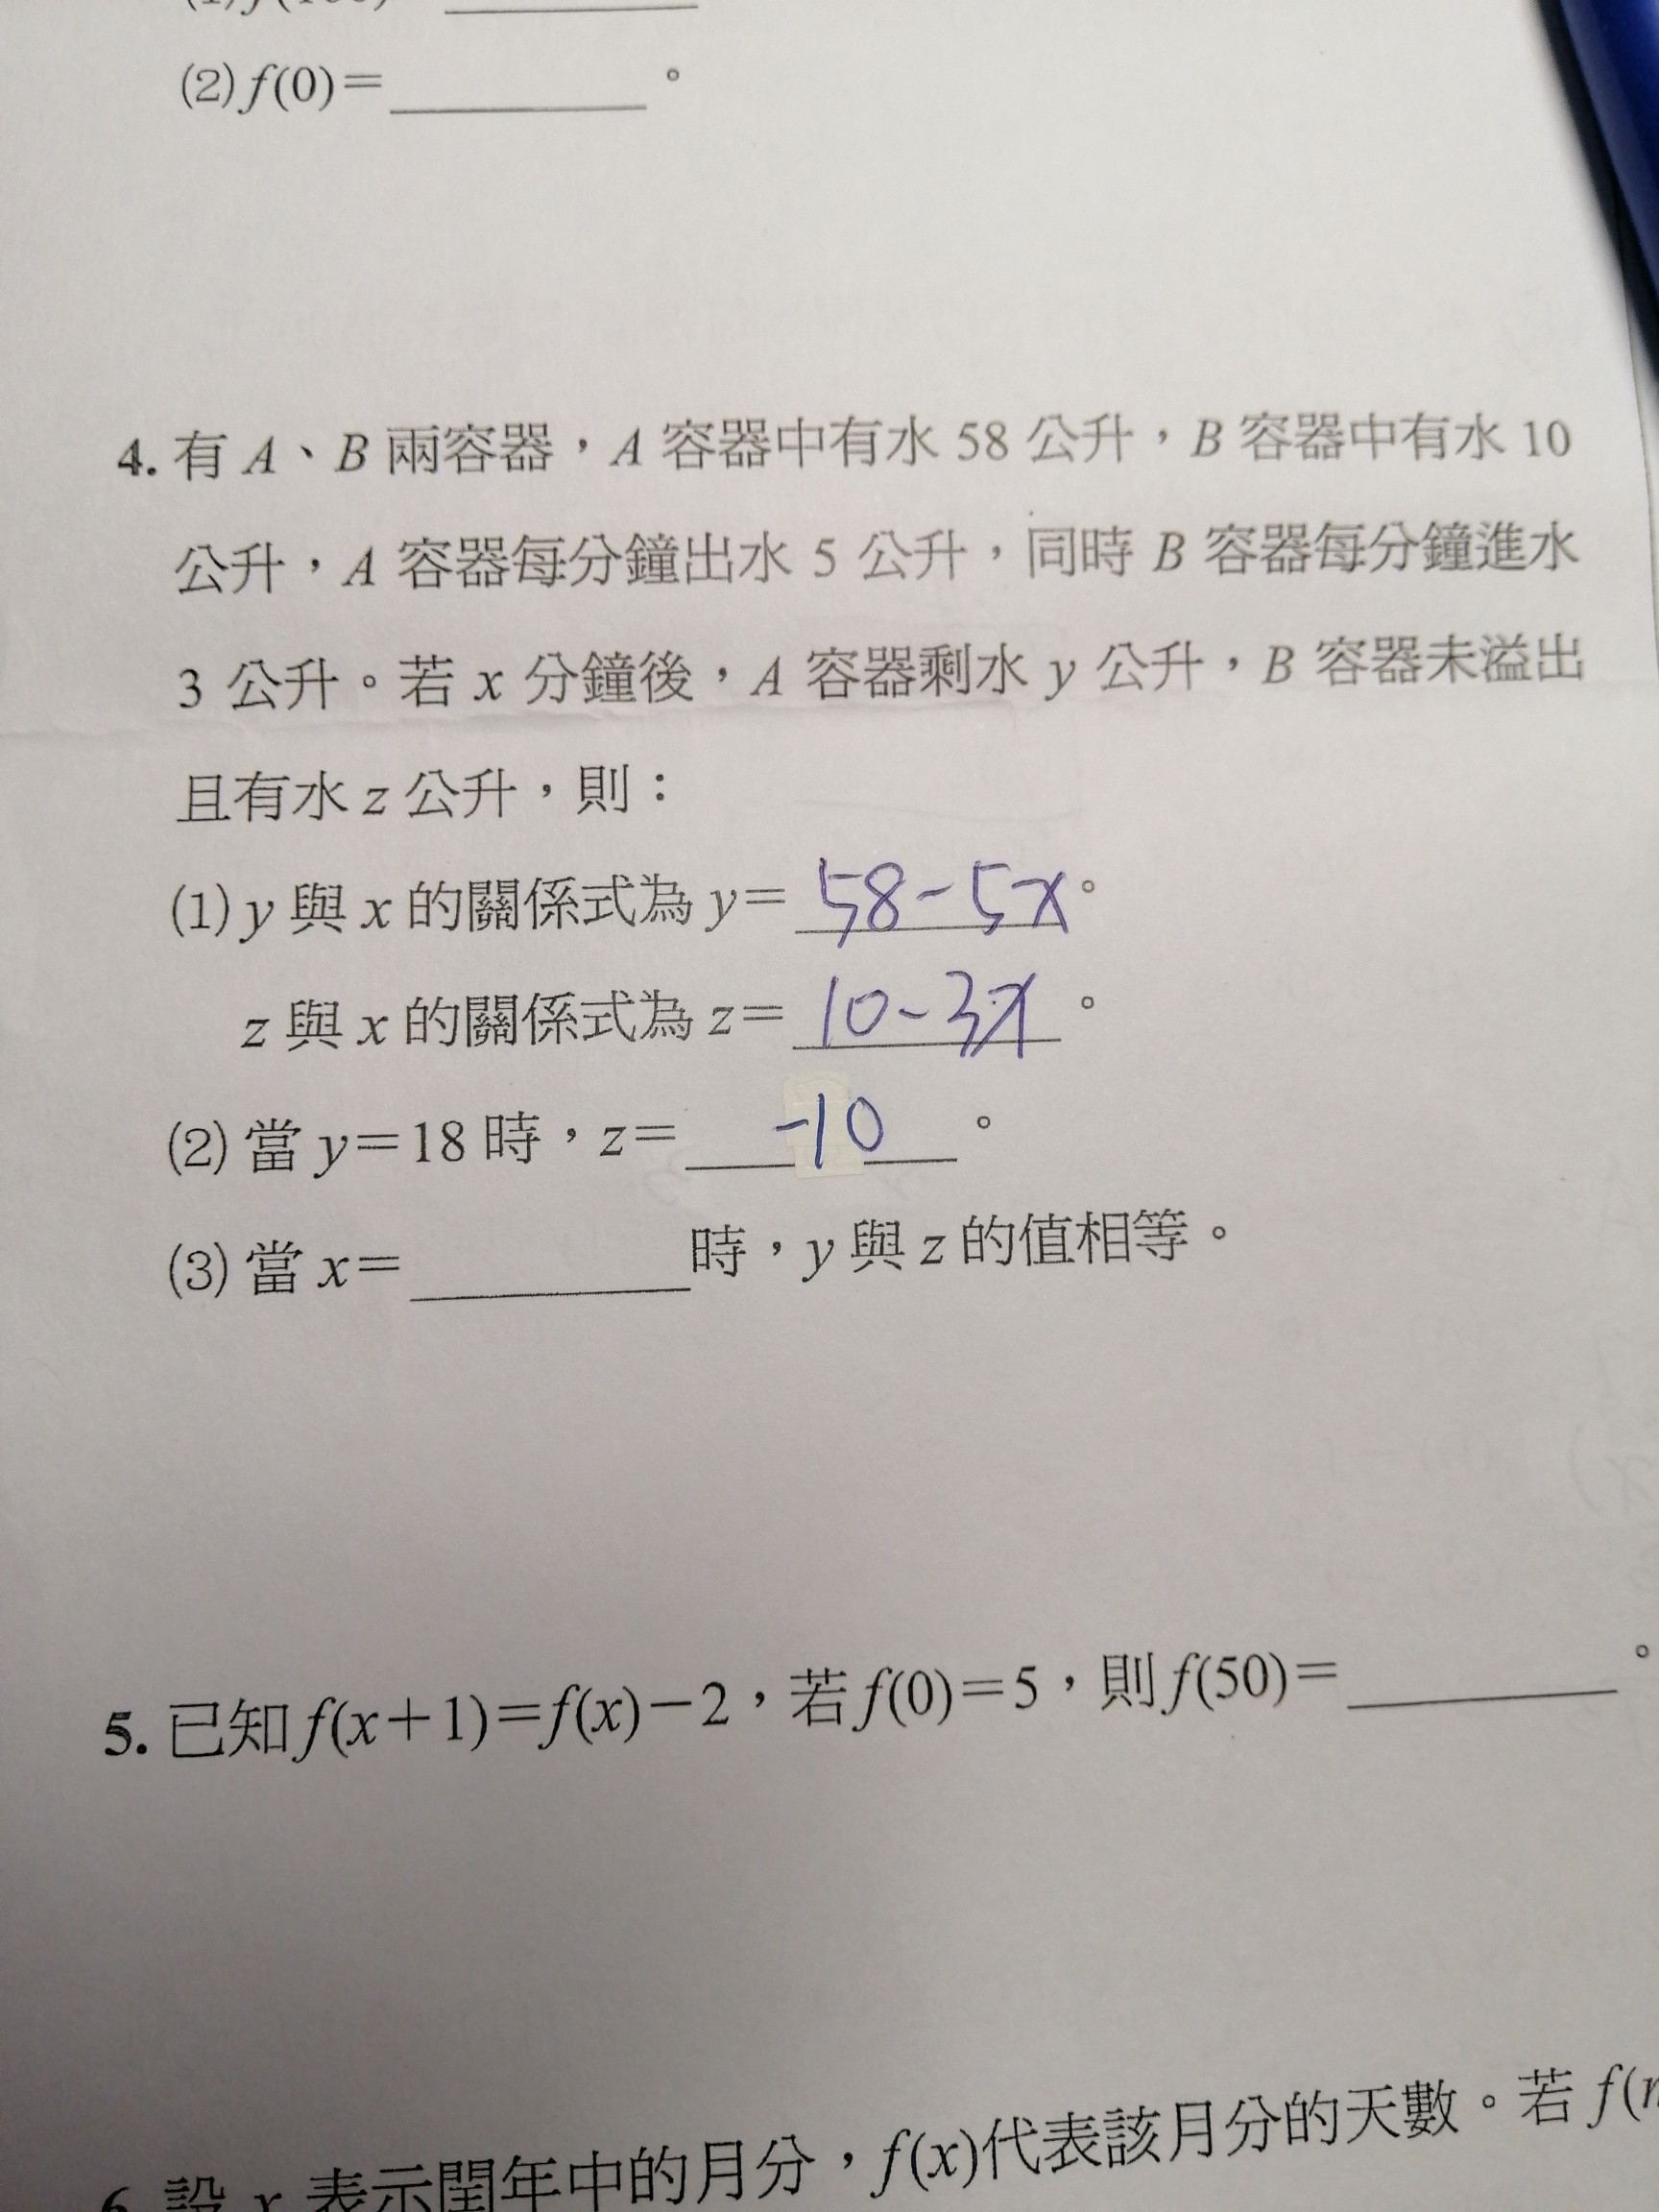 (2) f(0)=________。
4. 有 A、B 兩容器，A 容器中有水 58 公升，B 容器中有水 10
公升，A 容器每分鐘出水 5 公升，同時 B 容器每分鐘進水
3 公升。若 x 分鐘後，A 容器剩水 y 公升，B 容器未溢出
且有水 z 公升，則：
(1) y 與 x 的關係式為 y= 58-5x。
z 與 x 的關係式為 z= 10-3x。
(2) 當 y=18 時，z= -10。
(3) 當 x=________時，y 與 z 的值相等。
5. 已知 f(x+1)=f(x)-2，若 f(0)=5，則 f(50)=________。
6. 設 x 表示閏年中的月分，f(x)代表該月分的天數。若 f(